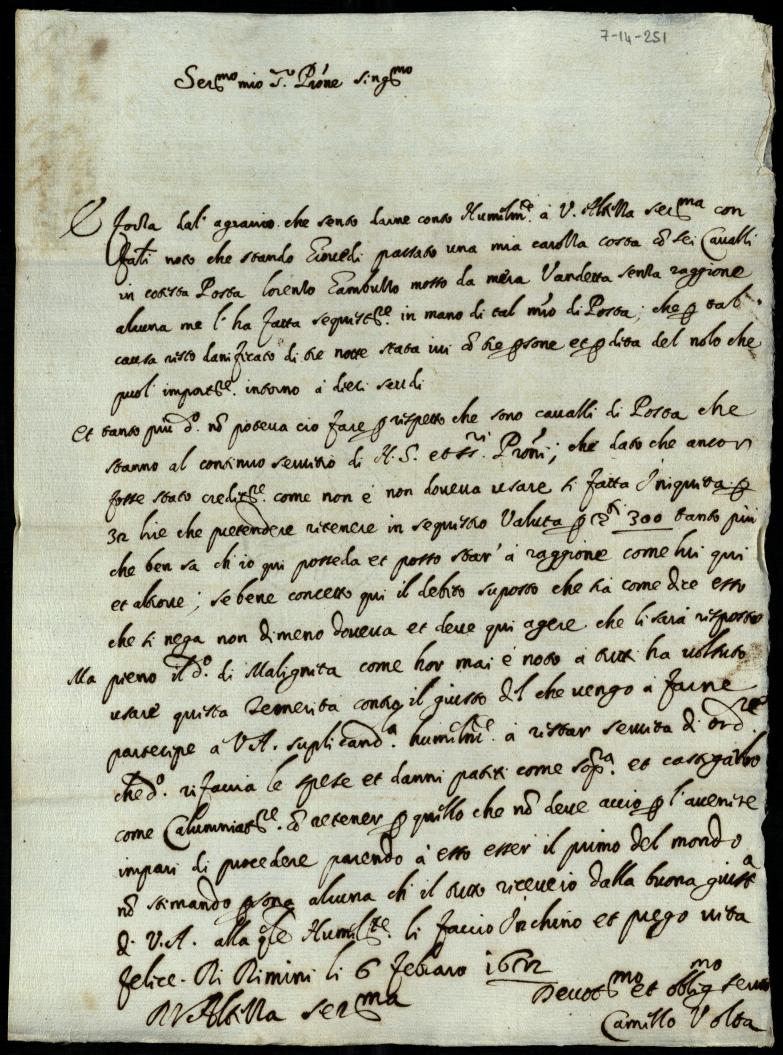 7-14-251
Ser.mo mio S.r P'rone sing.mo
E forza dal' agravio che sento darne conto Humilm.te à V. Altezza ser.ma con
farli noto che stando Giovedi passato una mia carozza costa cō sei Cavalli
in cotesta Posta Lorenzo Gambutto mosso da mēra Vandetta senza raggione
alcuna me l' ha fatta sequist.re in mano di tal mrō di Posta; che p tal
causa resto danificato di tre notte stata ivi cō tre psone et pdita del nolo che
puol import.re intorno à dieci scudi
et tanto più d.o nō poteva cio fare p rispetto che sono cavalli di Posta che
stanno al continuo servitio di N. S. et ss.ri P'roni; che dato che ancor
fosse stato credit.re come non è non doveva usare si fatta Iniquita p
32 lire che pretendere ritenere in sequestro Valuta p 300 tanto più
che ben sa ch' io qui posseda et posso star' à raggione come lui qui
et altrove; se bene concesso qui il debito suposto che sia come dice esso
che si nega non di meno doveva et deve qui agere che li sarà risposto
Ma pieno il d.o di Malignita come hor mai è noto à tutti ha voluto
usare questa Temerita contro il giusto del che vengo à farne
partecipe à V.A. suplicand.a humilm.te à restar servita di ord.re
che d.o rifaccia le spese et danni patiti come sop.a et castigarlo
come Calumniat.re cō retener p quello che nō deve accio p l'avenire
impari di procedere parendo à esso esser il primo del mondo
nō stimando psona alcuna ch' il tutto ricevero dalla buona giust.a
di V.A. alla qle Humil.te li faccio Inchino et prego vita
felice. Di Rimini li 6 febraro 1672
D V Altezza ser.ma
Devot.mo et oblig.mo servo
Camillo Volta